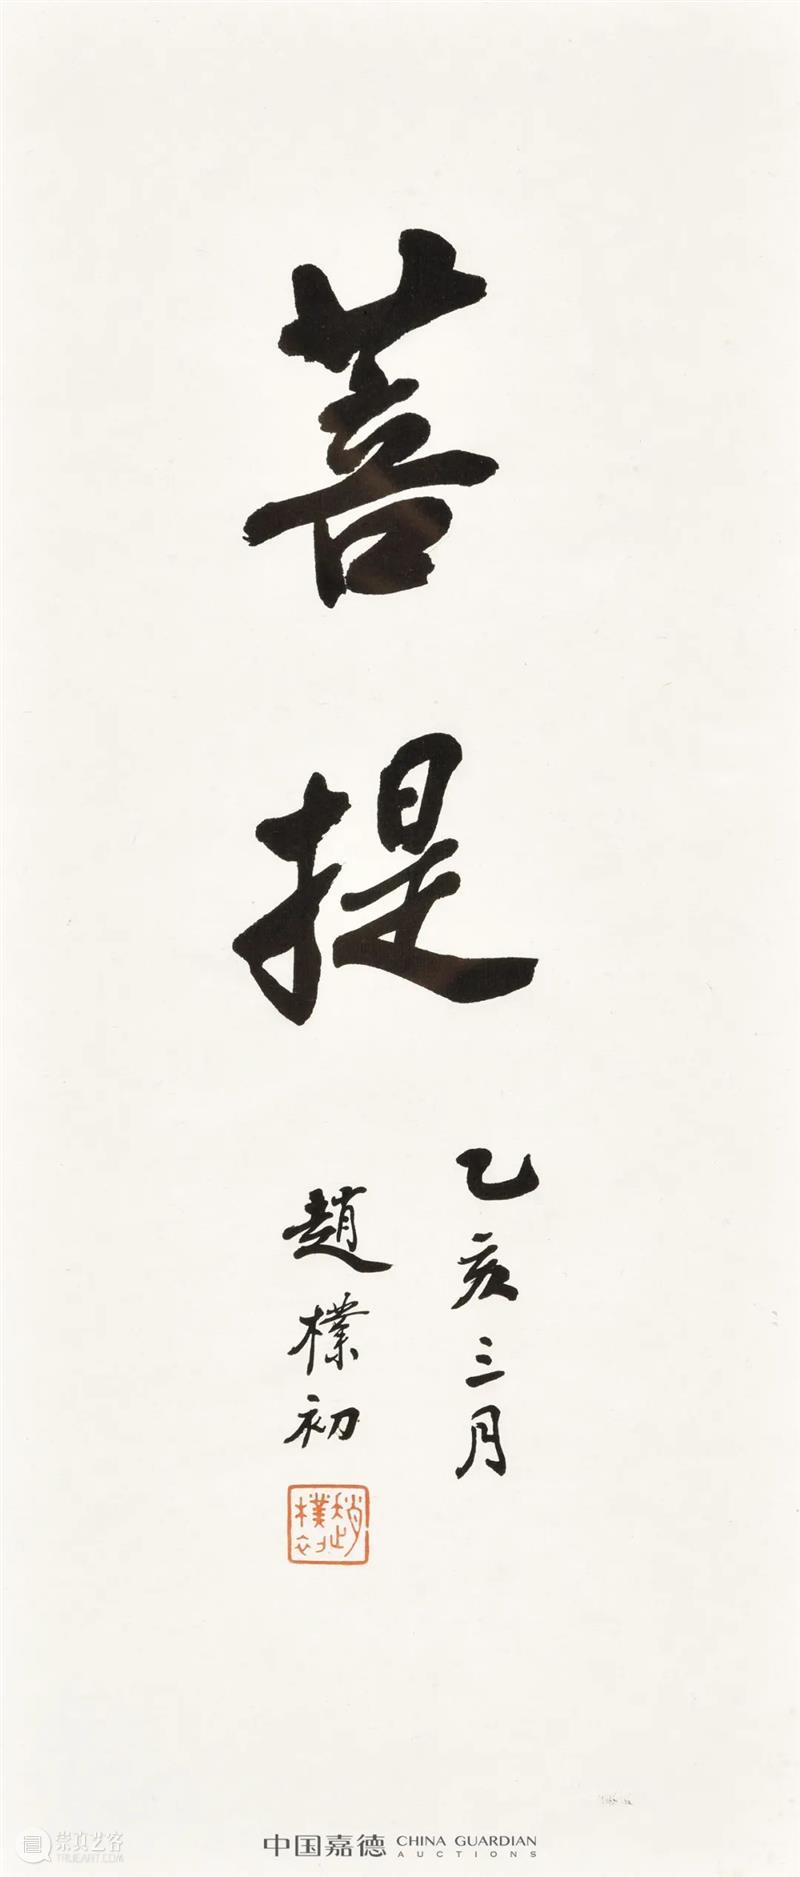 菩提
乙亥三月
趙樸初
趙樸初
中国嘉德 CHINA GUARDIAN
AUCTIONS
崇真艺客
WWW.TRUEART.COM